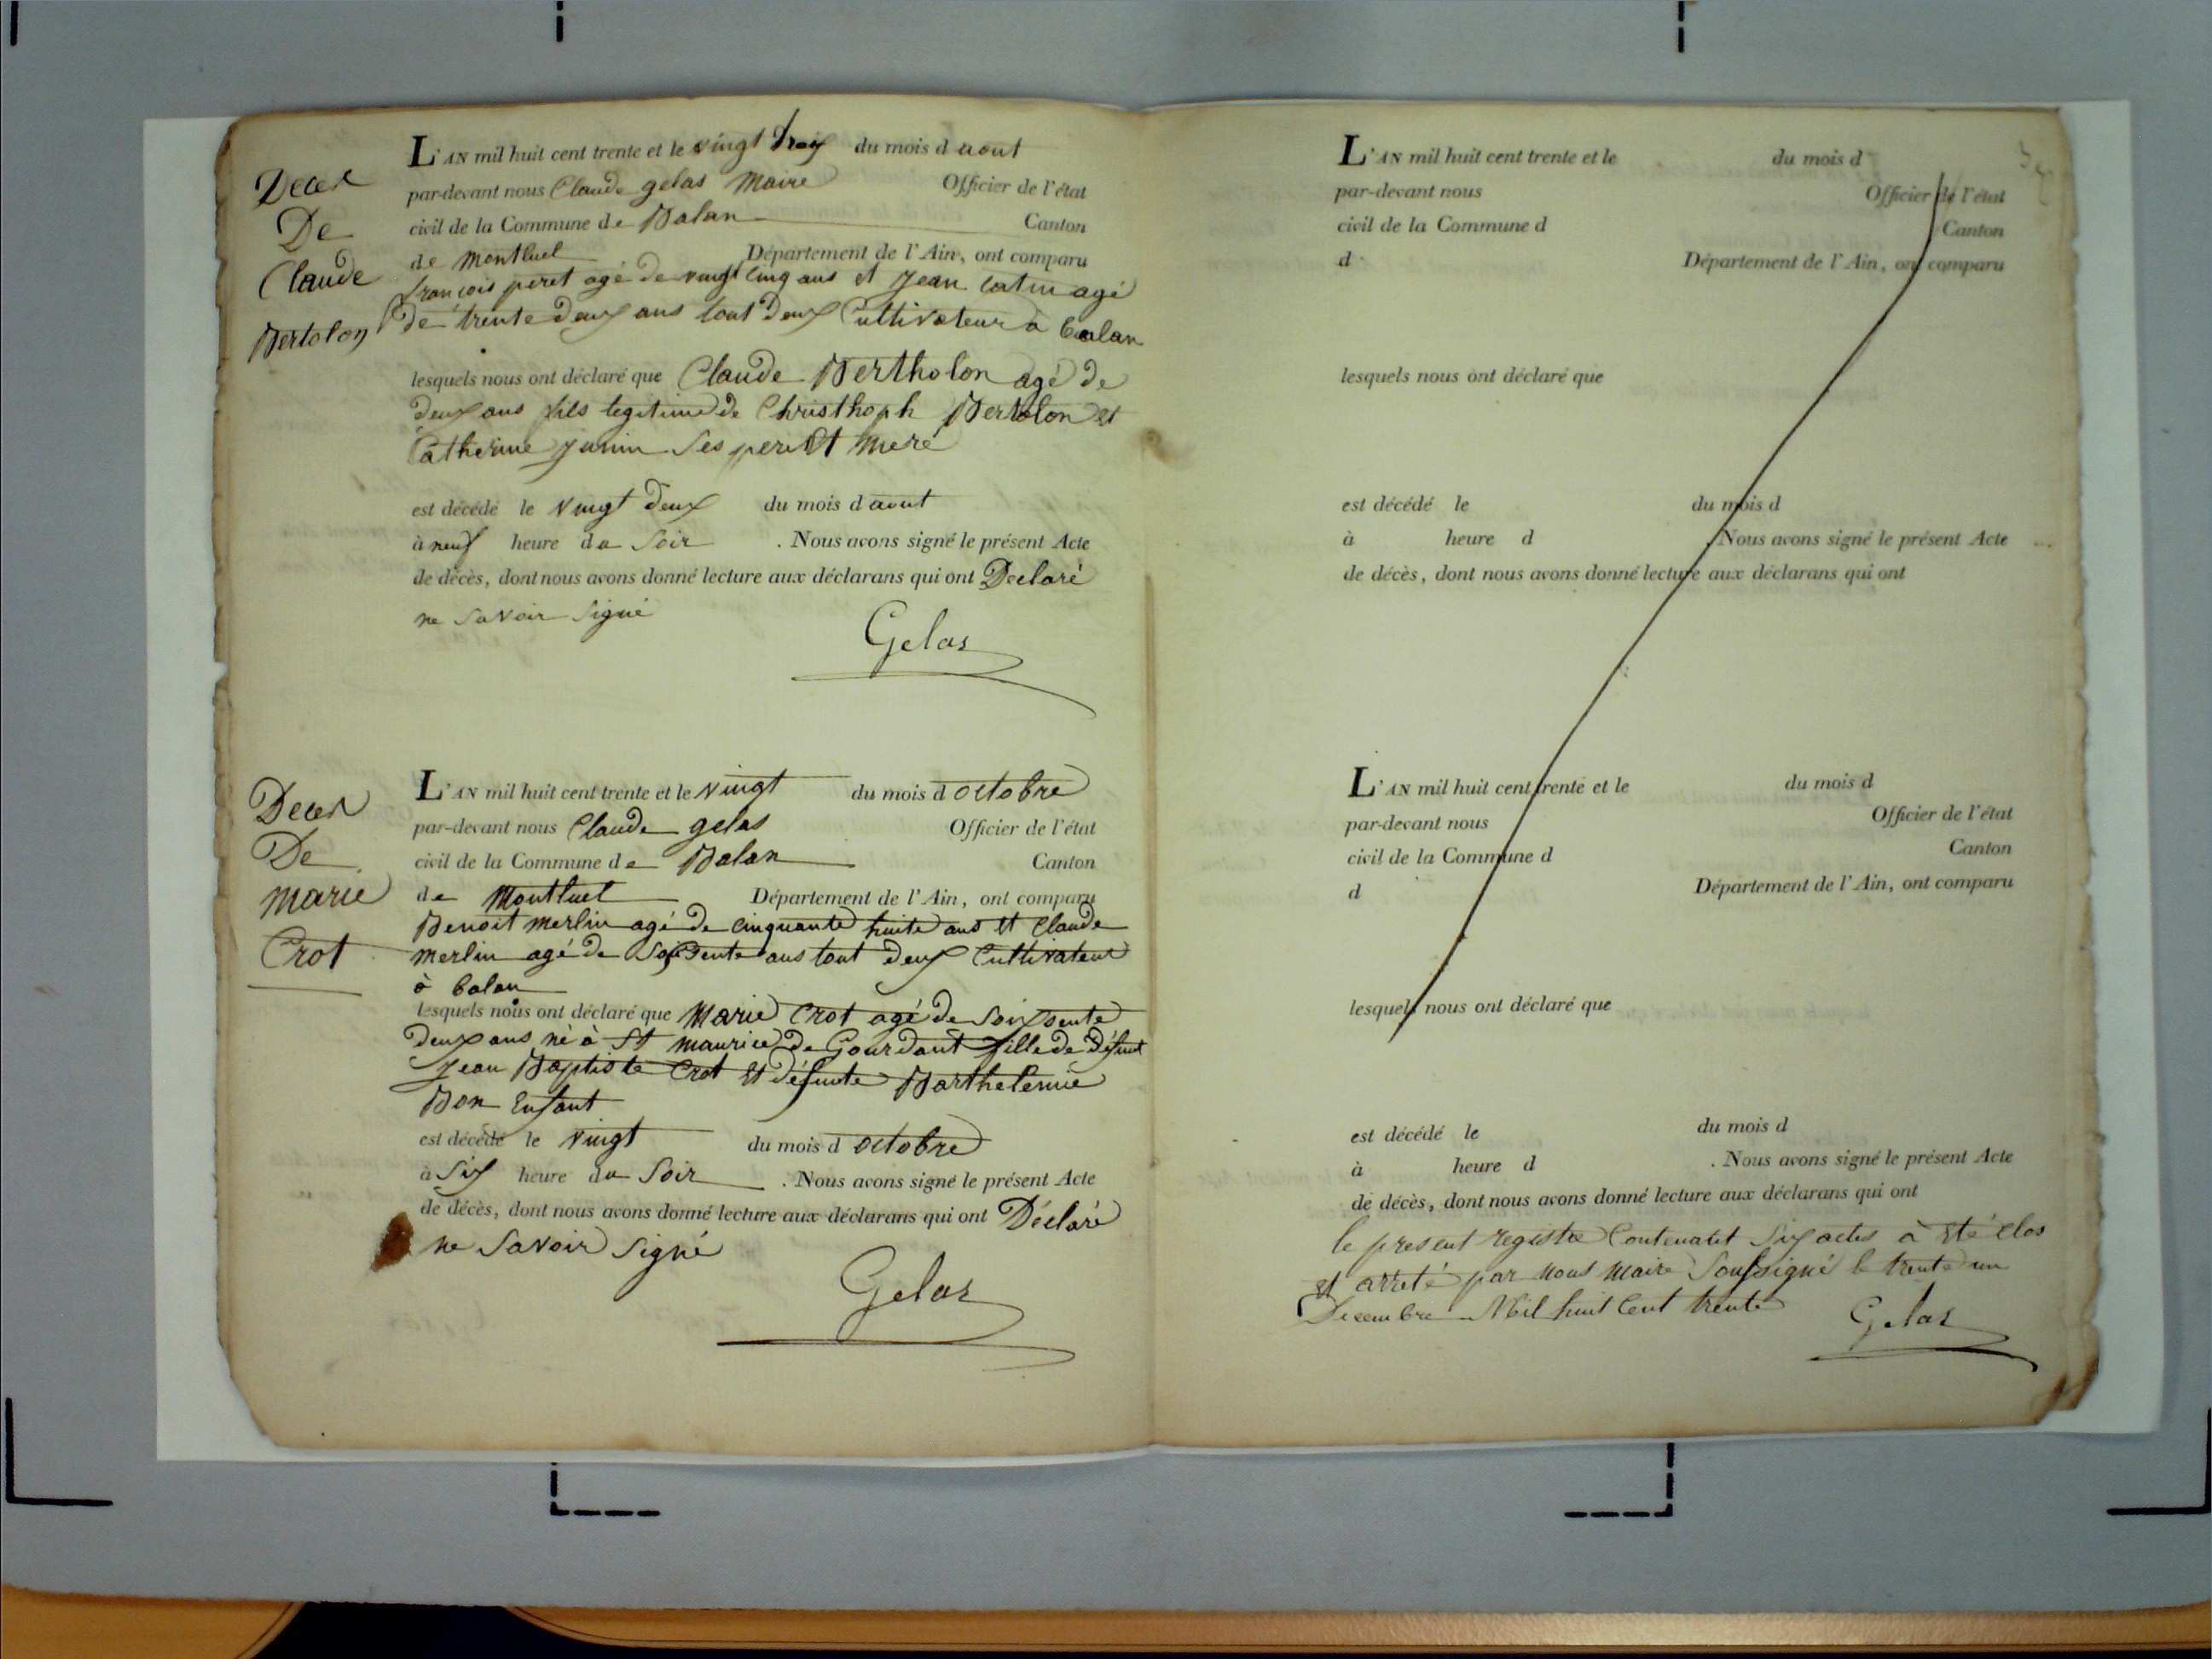 Deces
De
Claude
Bertolon
L'AN mil huit cent trente et le vingt trois du mois d aout
par-devant nous Claude gelas Maire Officier de l'état
civil de la Commune de Balan Canton
de Montluel Département de l'Ain, ont comparu
françois peret agé de vingt cinq ans et Jean catin agé
de trente deux ans tout deux Cultivateur a balan
lesquels nous ont déclaré que Claude Bertholon agé de
deux ans fils legitime de Christhoph Bertolon et
Catherine Junin Ses pere Et Mere
est décédé le vingt deux du mois d aout
à neuf heure du Soir . Nous avons signé le présent Acte
de décès, dont nous avons donné lecture aux déclarans qui ont Declaré
ne Savoir Signé
Gelas
Deces
De
marie
Crot
L'AN mil huit cent trente et le vingt du mois d octobre
par-devant nous Claude gelas Officier de l'état
civil de la Commune de Balan Canton
de Montluel Département de l'Ain, ont comparu
Benoit Merlin agé de cinquante huite ans Et Claude
Merlin agé de Soissente ans tout deux Cultivateur
à balan
lesquels nous ont déclaré que Marie Crot agé de Soissente
deux ans né à St Maurice de Gourdant fille de défunt
Jean Baptiste Crot Et défunte Barthelemie
Bon Enfant
est décédé le vingt du mois d octobre
à Six heure du Soir . Nous avons signé le présent Acte
de décès, dont nous avons donné lecture aux déclarans qui ont Déclaré
ne Savoir Signé
Gelas
L'AN mil huit cent trente et le du mois d
par-devant nous Officier de l'état
civil de la Commune d Canton
d Département de l'Ain, ont comparu
lesquels nous ont déclaré que
est décédé le du mois d
à heure d . Nous avons signé le présent Acte
de décès, dont nous avons donné lecture aux déclarans qui ont
L'AN mil huit cent trente et le du mois d
par-devant nous Officier de l'état
civil de la Commune d Canton
d Département de l'Ain, ont comparu
lesquels nous ont déclaré que
est décédé le du mois d
à heure d . Nous avons signé le présent Acte
de décès, dont nous avons donné lecture aux déclarans qui ont
le present registre Contenant Six actes à Eté clos
et arreté par Nous Maire Soussigné le trente un
Decembre Mil huit Cent trente
Gelas